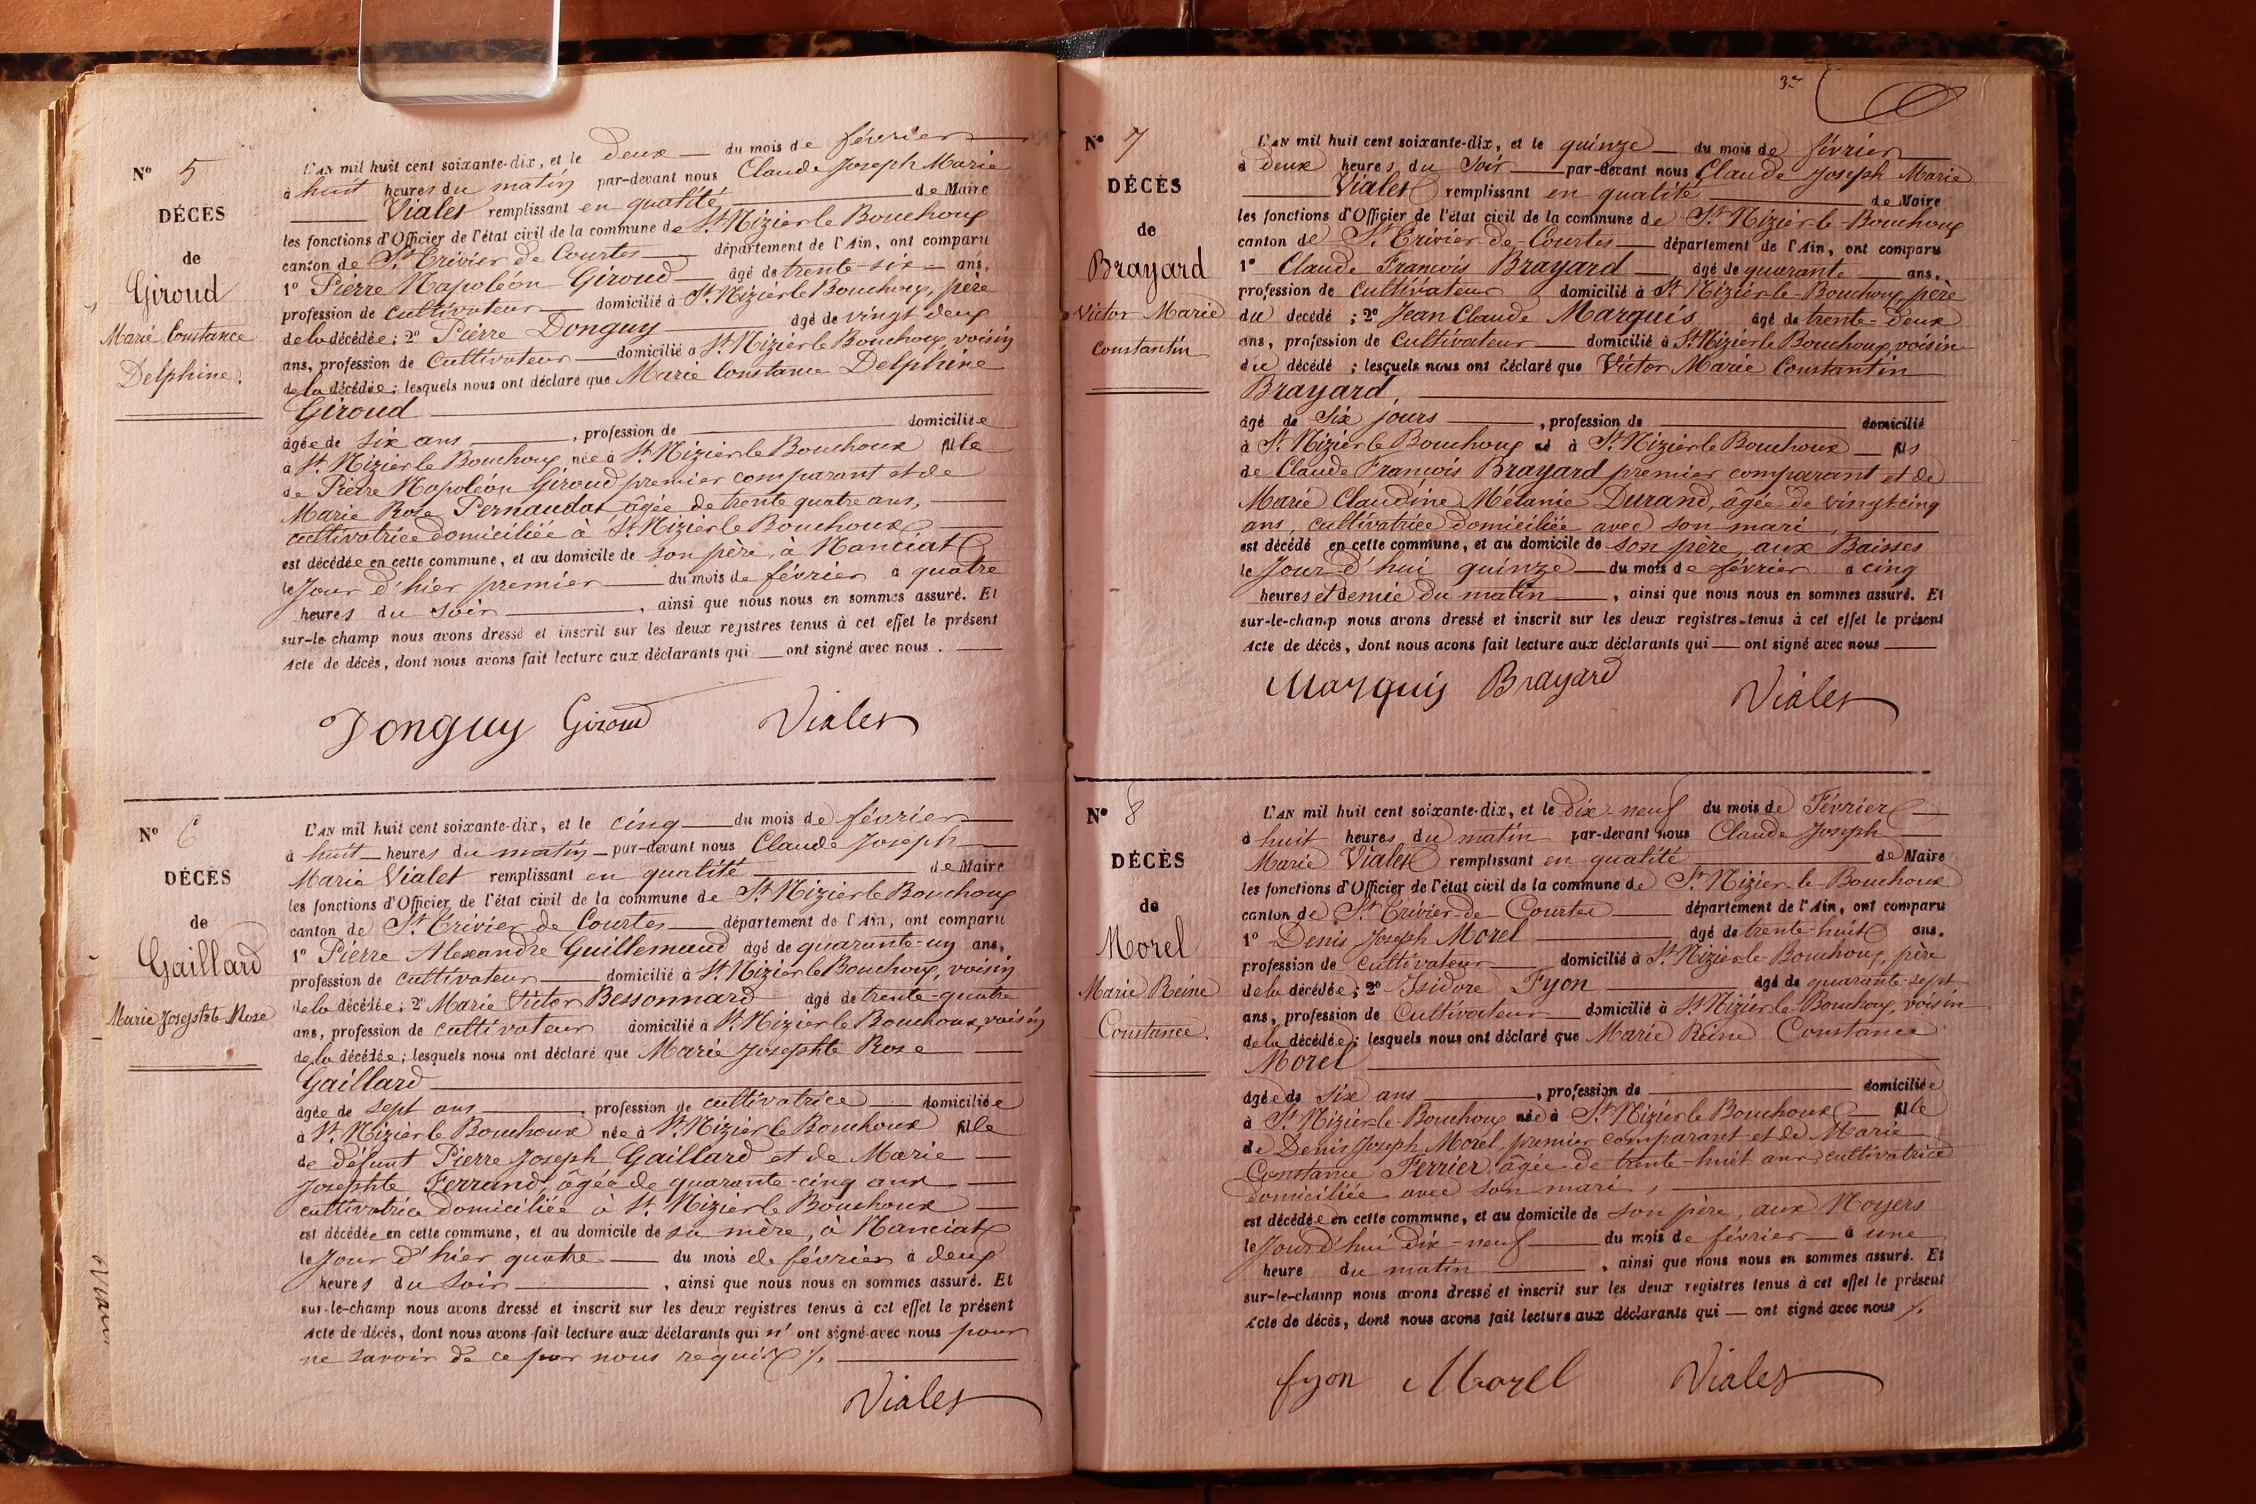 Nº 5
DÉCÈS
de
Giroud
Marie Constance
Delphine.
L'AN mil huit cent soixante-dix, et le deux du mois de février
à huit heures du matin par-devant nous Claude Joseph Marie
Vialet remplissant en qualité de Maire
les fonctions d'Officier de l'état civil de la commune de St Nizier le Bouchoux
canton de St Trivier de Courtes département de l'Ain, ont comparu
1º Pierre Napoléon Giroud âgé de trente-six ans,
profession de cultivateur domicilié à St Nizier le Bouchoux, père
de la décédée; 2º Pierre Donguy âgé de vingt deux
ans, profession de cultivateur domicilié à St Nizier le Bouchoux, voisin
de la décédée; lesquels nous ont déclaré que Marie Constance Delphine
Giroud
âgée de six ans, profession de domiciliée
à St Nizier le Bouchoux née à St Nizier le Bouchoux fille
de Pierre Napoléon Giroud premier comparant et de
Marie Rose Pernaudat âgée de trente quatre ans,
cultivatrice domiciliée à St Nizier le Bouchoux
est décédée en cette commune, et au domicile de son père, à Nanciat
le Jour d'hier premier du mois de février à quatre
heures du soir, ainsi que nous nous en sommes assuré. Et
sur-le-champ nous avons dressé et inscrit sur les deux registres tenus à cet effet le présent
Acte de décès, dont nous avons fait lecture aux déclarants qui ont signé avec nous.
Donguy Giroud Vialet
Nº 6
DÉCÈS
de
Gaillard
Marie Josephte Rose
L'AN mil huit cent soixante-dix, et le cinq du mois de février
à huit heures du matin par-devant nous Claude Joseph
Marie Vialet remplissant en qualité de Maire
les fonctions d'Officier de l'état civil de la commune de St Nizier le Bouchoux
canton de St Trivier de Courtes département de l'Ain, ont comparu
1º Pierre Alexandre Guillemaud âgé de quarante-un ans,
profession de cultivateur domicilié à St Nizier le Bouchoux, voisin
de la décédée; 2º Marie Victor Bessonnard âgé de trente-quatre
ans, profession de cultivateur domicilié à St Nizier le Bouchoux, voisin
de la décédée; lesquels nous ont déclaré que Marie Josephte Rose
Gaillard
âgée de sept ans, profession de cultivatrice domiciliée
à St Nizier le Bouchoux née à St Nizier le Bouchoux fille
de défunt Pierre Joseph Gaillard et de Marie
Josephte Ferrand, âgée de quarante-cinq ans
cultivatrice domiciliée à St Nizier le Bouchoux
est décédée en cette commune, et au domicile de sa mère, à Nanciat
le Jour d'hier quatre du mois de février à deux
heures du soir, ainsi que nous nous en sommes assuré. Et
sur-le-champ nous avons dressé et inscrit sur les deux registres tenus à cet effet le présent
Acte de décès, dont nous avons fait lecture aux déclarants qui n'ont signé avec nous pour
ne savoir de ce par nous requis
Vialet
Nº 7
DÉCÈS
de
Brayard
Victor Marie
Constantin
L'AN mil huit cent soixante-dix, et le quinze du mois de février
à deux heures du soir par-devant nous Claude Joseph Marie
Vialet remplissant en qualité de Maire
les fonctions d'Officier de l'état civil de la commune de St Nizier-le-Bouchoux
canton de St Trivier-de-Courtes département de l'Ain, ont comparu
1º Claude François Brayard âgé de quarante ans,
profession de cultivateur domicilié à St Nizier-le-Bouchoux, père
du décédé; 2º Jean Claude Marquis âgé de trente-deux
ans, profession de cultivateur domicilié à St Nizier le Bouchoux, voisin
du décédé; lesquels nous ont déclaré que Victor Marie Constantin
Brayard,
âgé de six jours, profession de domicilié
à St Nizier le Bouchoux né à St Nizier le Bouchoux fils
de Claude François Brayard premier comparant et de
Marie Claudine Mélanie Durand, âgée de vingt-cinq
ans, cultivatrice domiciliée avec son mari,
est décédé en cette commune, et au domicile de son père, aux Baisses
le Jour d'hui quinze du mois de février à cinq
heures et demie du matin, ainsi que nous nous en sommes assuré. Et
sur-le-champ nous avons dressé et inscrit sur les deux registres tenus à cet effet le présent
Acte de décès, dont nous avons fait lecture aux déclarants qui ont signé avec nous
Marquis Brayard Vialet
Nº 8
DÉCÈS
de
Morel
Marie Reine
Constance.
L'AN mil huit cent soixante-dix, et le dix-neuf du mois de Février
à huit heures du matin par-devant nous Claude Joseph
Marie Vialet remplissant en qualité de Maire
les fonctions d'Officier de l'état civil de la commune de St Nizier-le-Bouchoux
canton de St Trivier-de-Courtes département de l'Ain, ont comparu
1º Denis Joseph Morel âgé de trente-huit ans.
profession de cultivateur domicilié à St Nizier-le-Bouchoux, père
de la décédée; 2º Isidore Fyon âgé de quarante-sept
ans, profession de cultivateur domicilié à St Nizier le Bouchoux, voisin
de la décédée; lesquels nous ont déclaré que Marie Reine Constance
Morel
âgée de six ans, profession de domiciliée
à St Nizier-le-Bouchoux née à St Nizier le Bouchoux fille
de Denis Joseph Morel premier comparant et de Marie
Constance Ferrier, âgée de trente-huit ans, cultivatrice
domiciliée avec son mari,
est décédée en cette commune, et au domicile de son père, aux Noyers
le Jour d'hui dix-neuf du mois de février à une
heure du matin, ainsi que nous nous en sommes assuré. Et
sur-le-champ nous avons dressé et inscrit sur les deux registres tenus à cet effet le présent
Acte de décès, dont nous avons fait lecture aux déclarants qui ont signé avec nous
fyon Morel Vialet